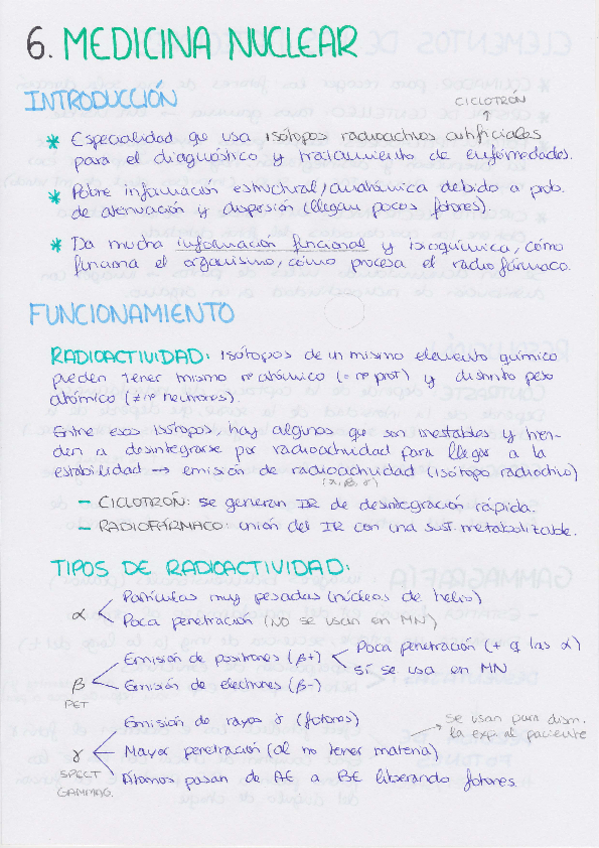 6. MEDICINA NUCLEAR
INTRODUCCIÓN
CICLOTRÓN
* Especialidad q usa isótopos radioactivos artificiales
para el diagnóstico y tratamiento de enfermedades.
* Pobre información estructural/anatómica debido a prob.
de atenuación y dispersión (llegan pocos fotones).
* Da mucha información funcional y bioquímica, cómo
funciona el organismo, cómo procesa el radiofármaco.
FUNCIONAMIENTO
RADIOACTIVIDAD: Isótopos de un mismo elemento químico
pueden tener mismo nº atómico (= nº prot) y distinto peso
atómico (≠ nº neutrones).
Entre esos isótopos, hay algunos que son inestables y tien-
den a desintegrarse por radioactividad para llegar a la
estabilidad → emisión de radioactividad (isótopo radioactivo)
(α, β, γ)
- CICLOTRÓN: se generan IR de desintegración rápida.
- RADIOFÁRMACO: unión del IR con una sust. metabolizable.
TIPOS DE RADIOACTIVIDAD:
Partículas muy pesadas (núcleos de helio)
α
Poca penetración (NO se usan en MN)
Emisión de positrones (β+) Poca penetración (+ q las α)
sí se usa en MN
β
Emisión de electrones (β-)
PET
Emisión de rayos γ (fotones)
→ Se usan para dism.
la exp. al paciente
γ Mayor penetración (al no tener materia)
SPECT
GAMMAG.
Átomos pasan de AE a BE liberando fotones.